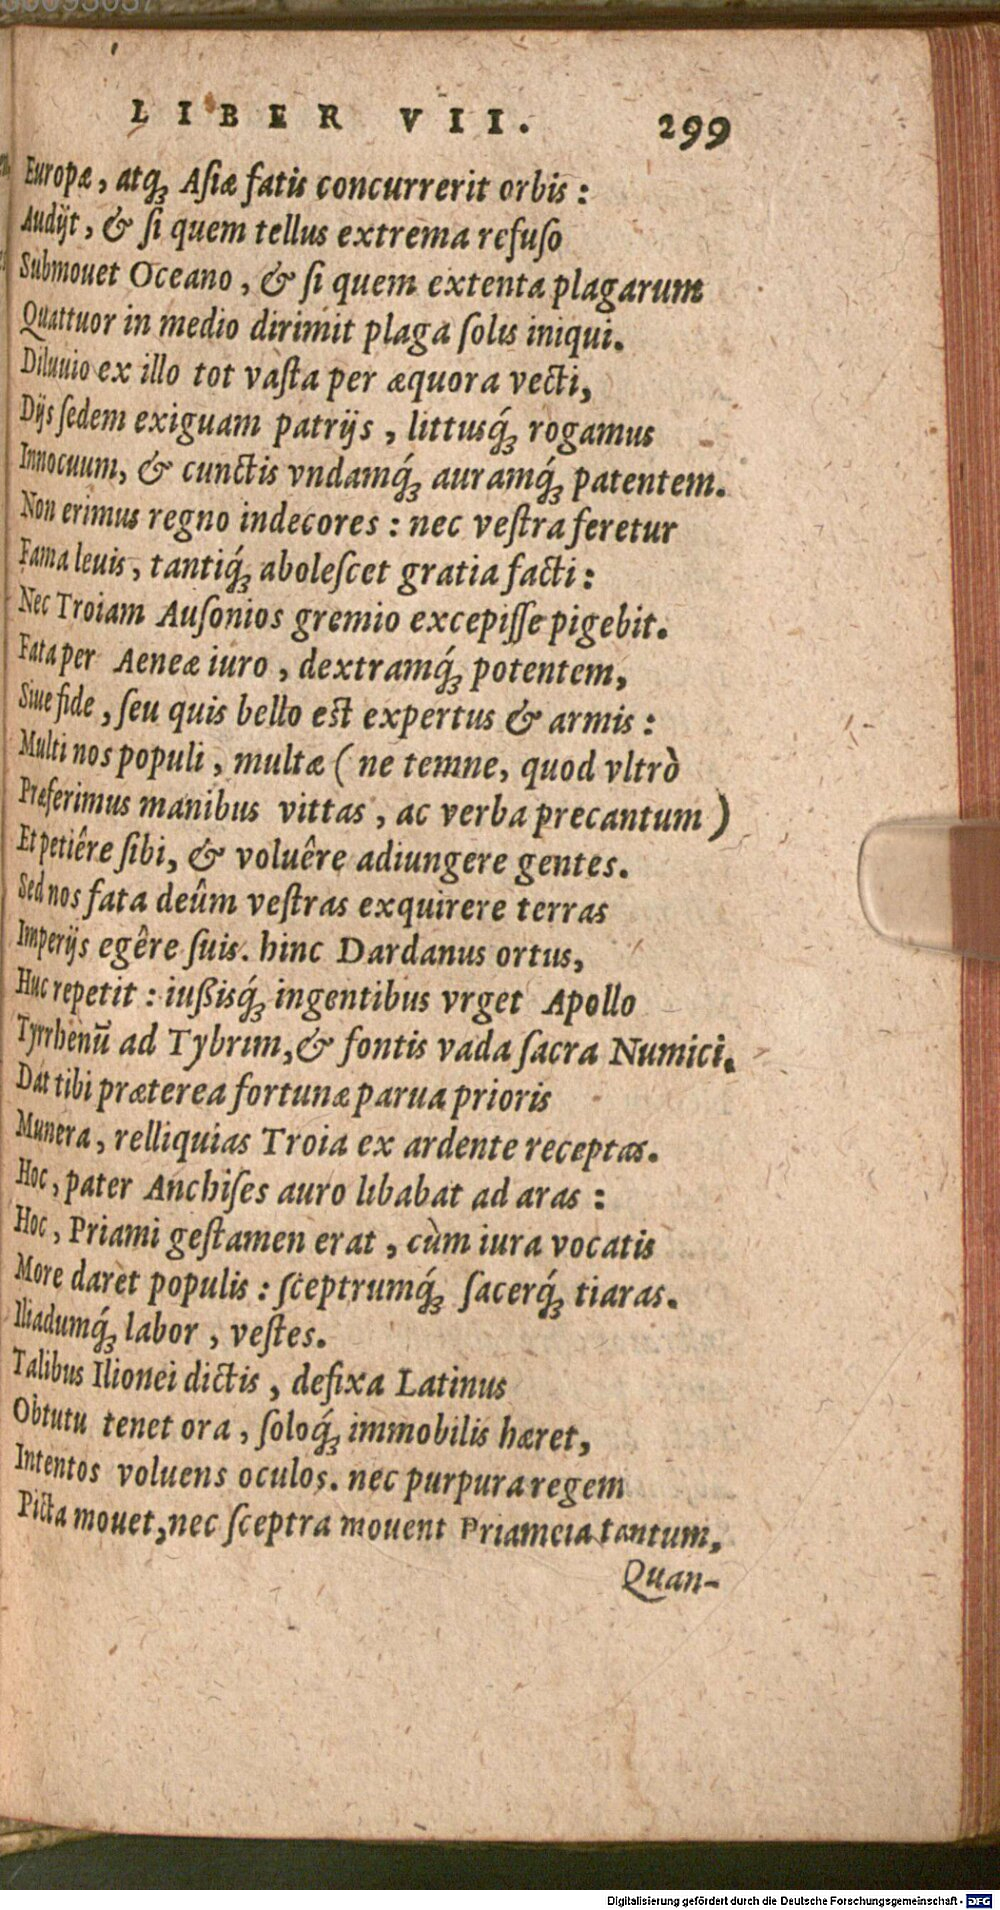 LIBER VII. 299
Europæ, atq; Aſiæ fatis concurrerit orbis:
Audijt, & ſi quem tellus extrema refuſo
Submouet Oceano, & ſi quem extenta plagarum
Quattuor in medio dirimit plaga ſolis iniqui.
Diluuio ex illo tot vaſta per æquora vecti,
Dijs ſedem exiguam patrijs, littusq́; rogamus
Innocuum, & cunctis vndamq́; auramq́; patentem.
Non erimus regno indecores: nec veſtra feretur
Fama leuis, tantiq́; aboleſcet gratia facti:
Nec Troiam Auſonios gremio excepiſſe pigebit.
Fata per Aeneæ iuro, dextramq́; potentem,
Siue fide, ſeu quis bello eſt expertus & armis:
Multi nos populi, multæ (ne temne, quod vltrò
Præferimus manibus vittas, ac verba precantum)
Et petiêre ſibi, & voluêre adiungere gentes.
Sed nos fata deûm veſtras exquirere terras
Imperijs egêre ſuis. hinc Dardanus ortus,
Huc repetit: iußisq́; ingentibus vrget Apollo
Tyrrhenū ad Tybrim, & fontis vada ſacra Numici.
Dat tibi præterea fortunæ parua prioris
Munera, relliquias Troia ex ardente receptas.
Hoc, pater Anchiſes auro libabat ad aras:
Hoc, Priami geſtamen erat, cùm iura vocatis
More daret populis: ſceptrumq́; ſacerq́; tiaras.
Iliadumq́; labor, veſtes.
Talibus Ilionei dictis, defixa Latinus
Obtutu tenet ora, ſoloq́; immobilis hæret,
Intentos voluens oculos. nec purpura regem
Picta mouet, nec ſceptra mouent Priameia tantum,
Quan-
Digitalisierung gefördert durch die Deutsche Forschungsgemeinschaft - DFG